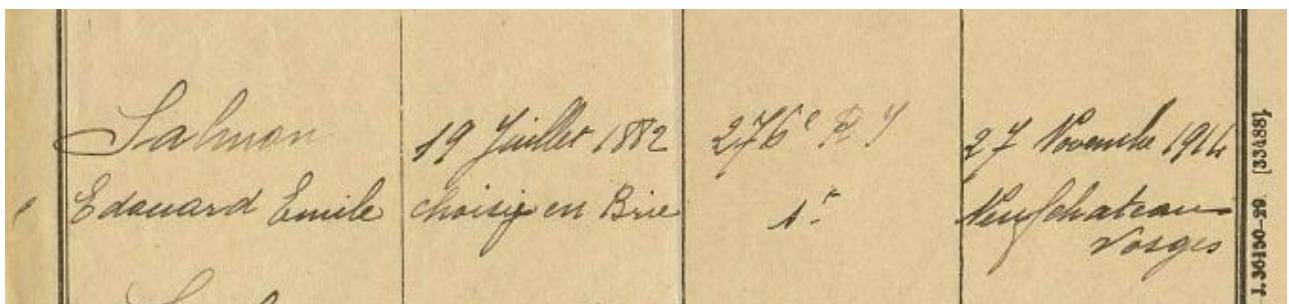 Salmon
Edouard Emile
19 Juillet 1882
choisy en Brie
276e R I
27 Novembre 1914
Neufchateau
Vosges
J. 36190-29 [33488]